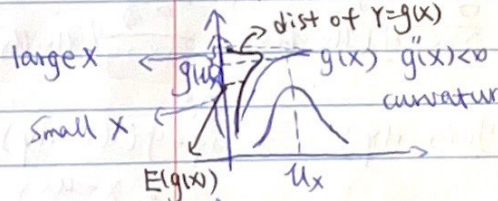 dist of Y=g(x)
large x
g(ux) g(x) g''(x)<0
curvatur
small x
E(g(x)) ux